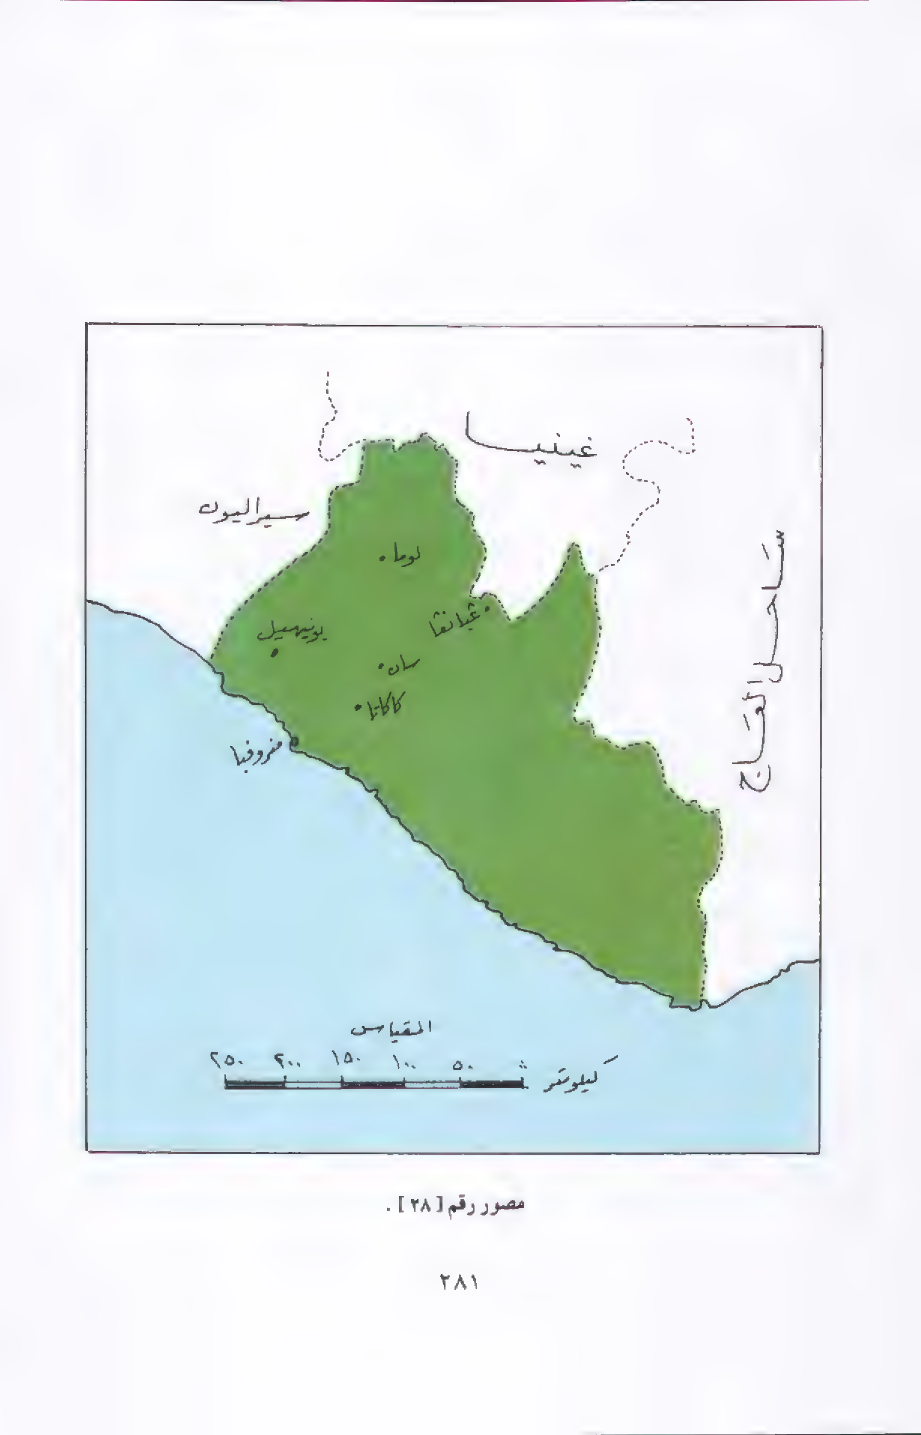 غينيا
سيراليون
ساحل العاج
لوما
غبانقا
بونيهيل
سان
كاكاتا
منروفيا
المقياس
٢٥٠ ٢٠٠ ١٥٠ ١٠٠ ٥٠
كيلومتر
مصور رقم [ ٢٨ ] .
٢٨١